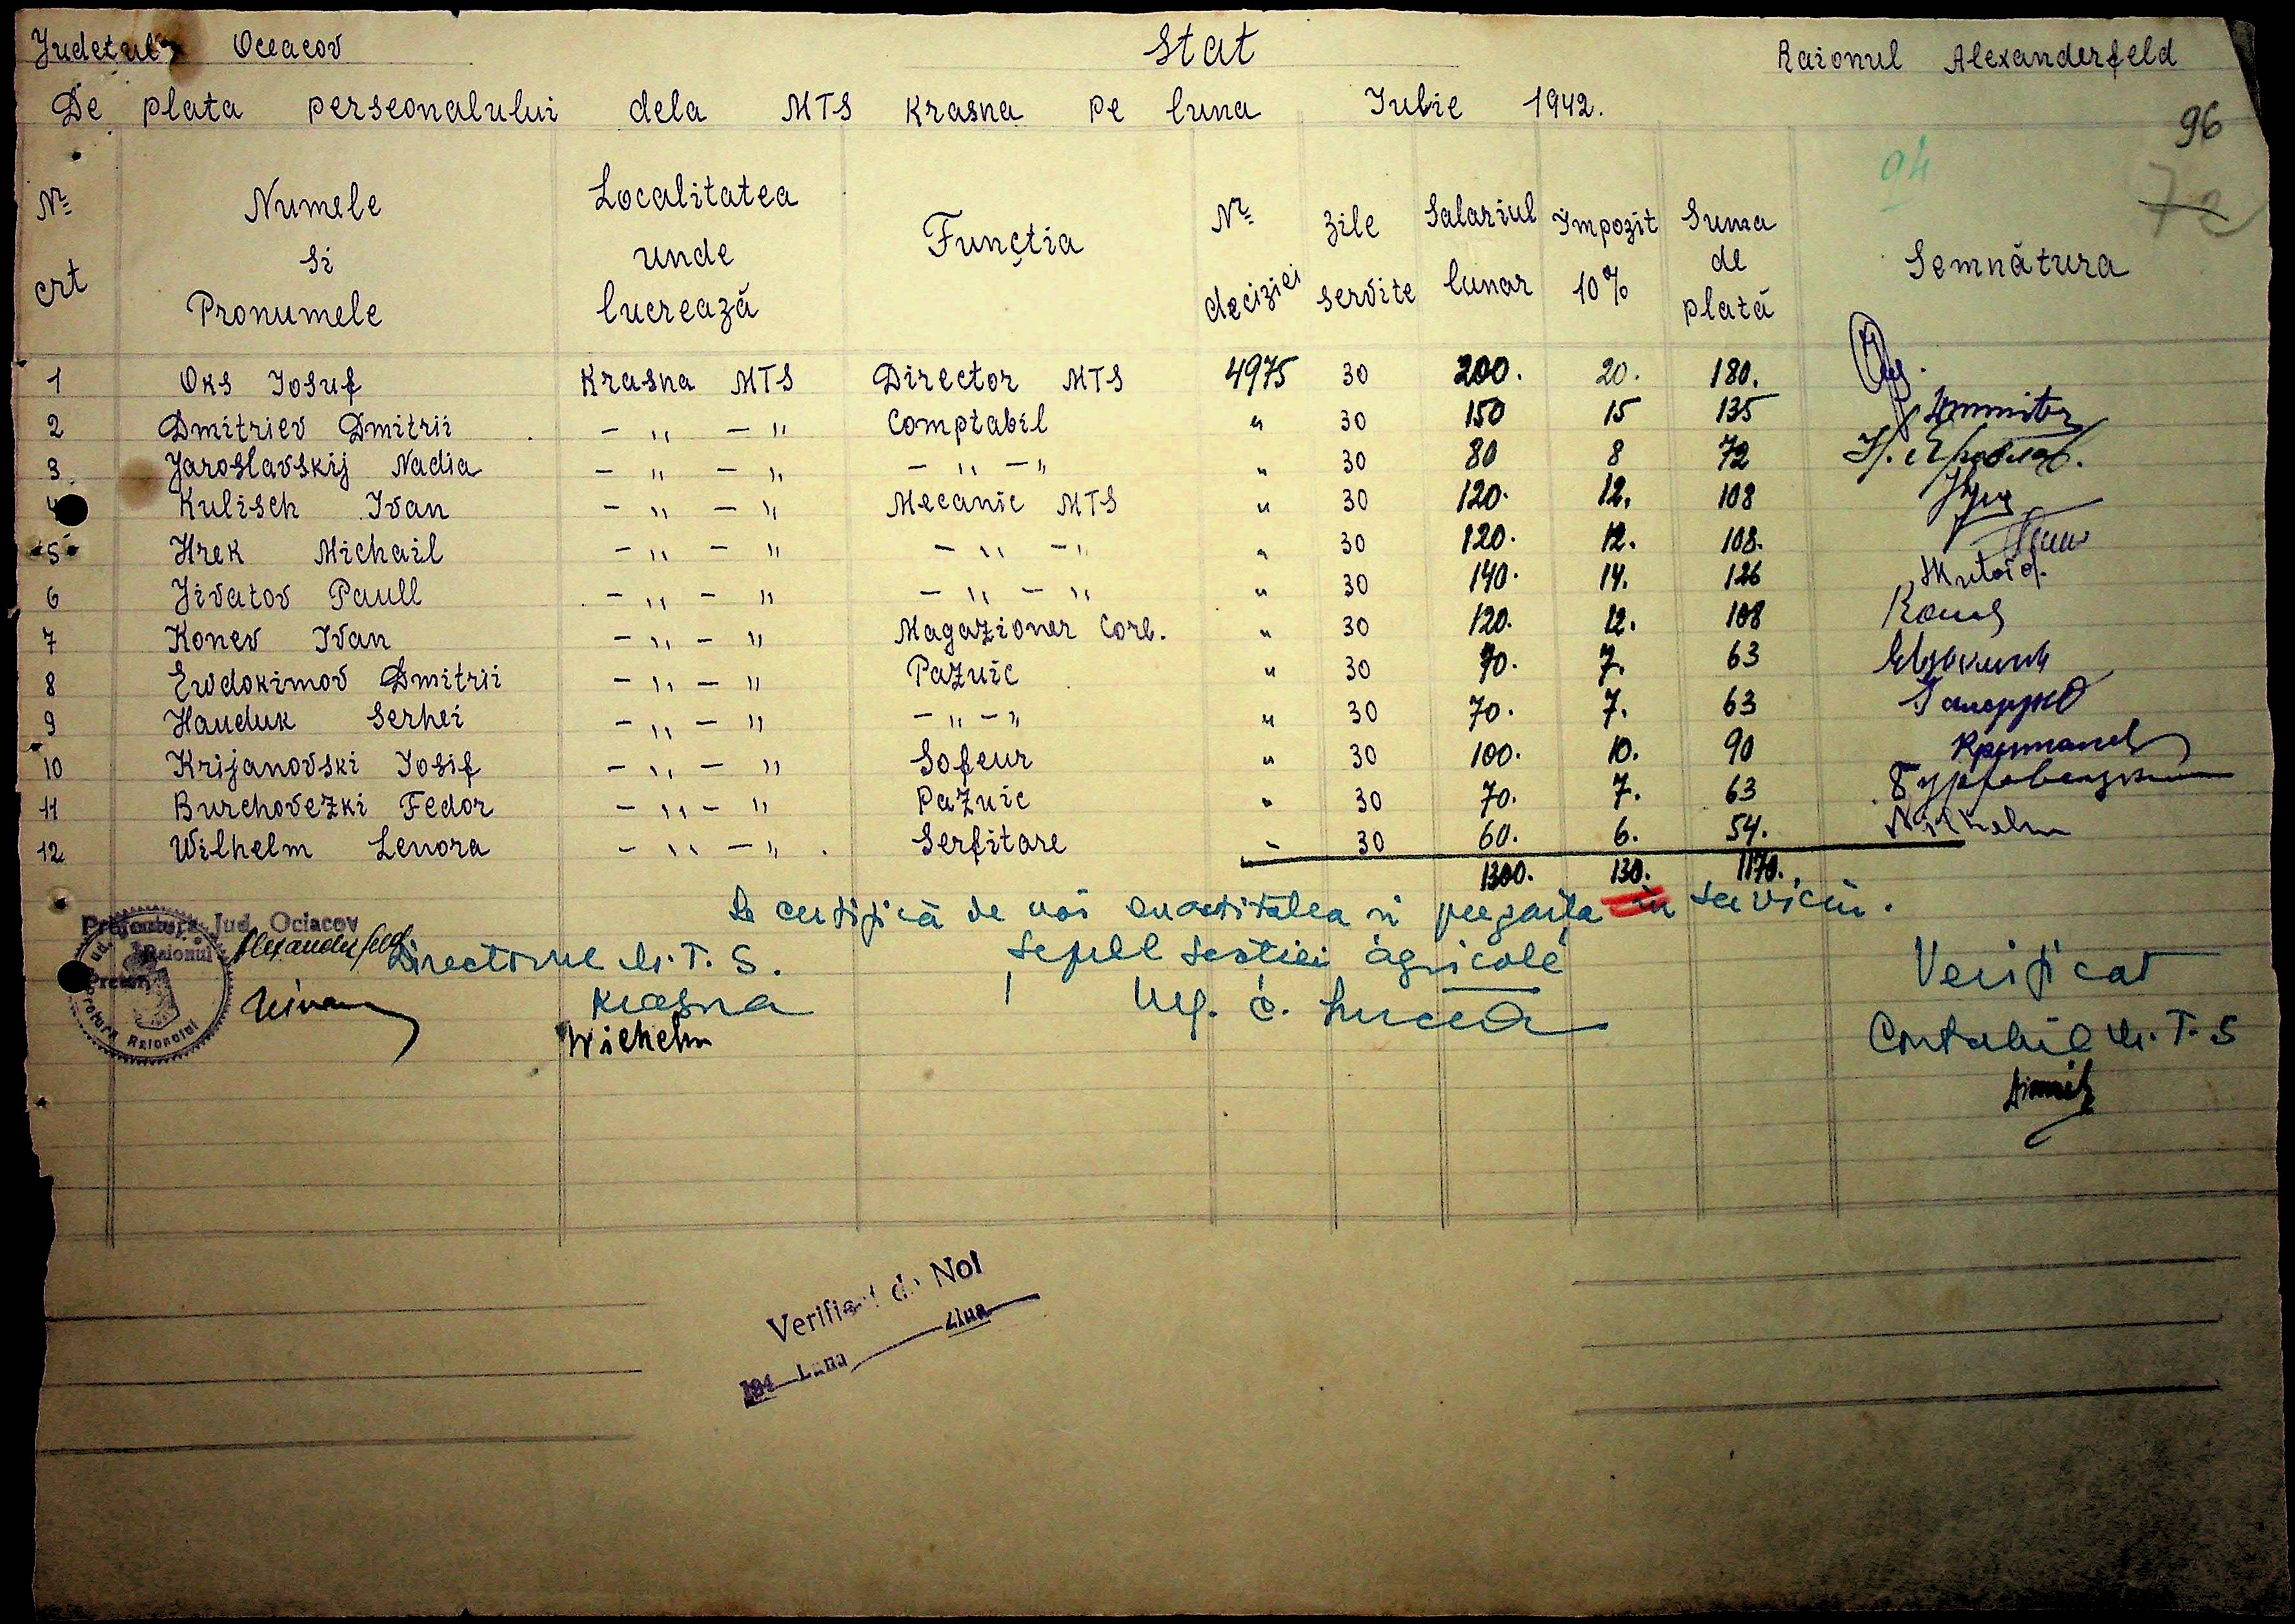 Judetul Oceacov Stat Raionul Alexanderfeld
De plata perseonalului dela MTS Krasna pe luna Iulie 1942.
96
94
72
Nr crt Numele si Pronumele Localitatea unde lucrează Funçtia Nr deciziei Zile servite Salariul lunar Impozit 10% Suma de plată Semnătura
1 Oks Iosuf Krasna MTS Director MTS 4975 30 200. 20. 180.
2 Dmitriev Dmitrii - " - " Comptabil " 30 150 15 135
3. Jaroslavskij Nadia - " - " - " - " " 30 80 8 72
4 Kulisch Ivan - " - " Mecanic MTS " 30 120. 12. 108
5 Hrek Michail - " - " - " - " " 30 120. 12. 108.
6 Jivatov Paull - " - " - " - " " 30 140. 14. 126
7 Konev Ivan - " - " Magazioner Corb. " 30 120. 12. 108
8 Ewdokimov Dmitrii - " - " Pazuic " 30 70. 7. 63
9 Hauduk Serhei - " - " - " - " " 30 70. 7. 63
10 Krijanovski Iosif - " - " Sofeur " 30 100. 10. 90
11 Burchovezki Fedor - " - " Pazuic " 30 70. 7. 63
12 Wilhelm Lenora - " - " Serfitare " 30 60. 6. 54. Wilhelm
1300. 130. 1170.
Se certifică de noi si in serviciu.
Prefectura Jud. Ociacov
Raionul Alexanderfeld
Pretor
Pretura Raionului
Directorul M.T.S.
Krasna
Wilhelm
Seful sectiei agricole
Ing. C.
Verificat
Contabil M.T.S
Verificat de Noi
194 Luna Ziua